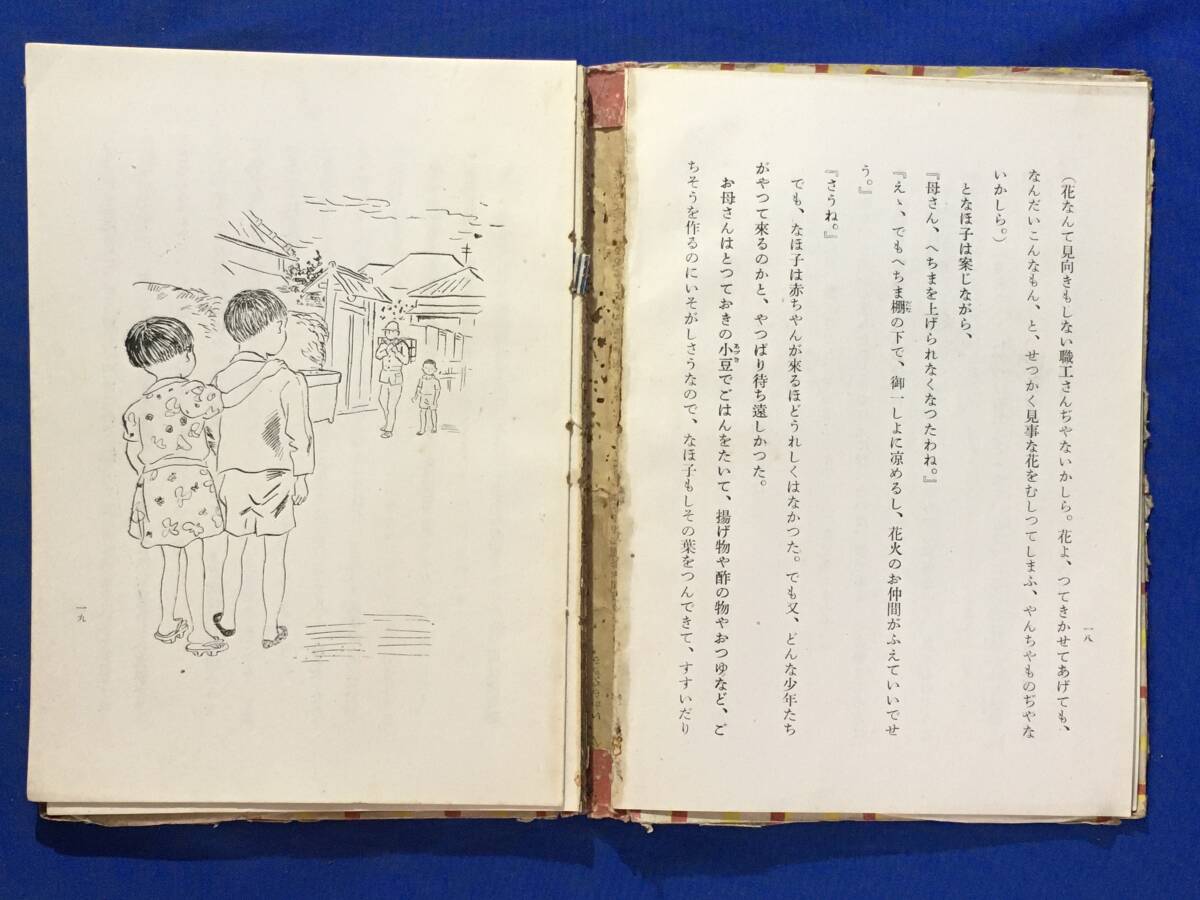 一八
(花なんて見向きもしない職工さんぢやないかしら。花よ、つてきかせてあげても、
なんだいこんなもん、と、せつかく見事な花をむしつてしまふ、やんちやものぢやな
いかしら。)
となほ子は案じながら、
『母さん、へちまを上げられなくなつたわね。』
『えゝ、でもへちま棚の下で、御一しよに凉めるし、花火のお仲間がふえていいでせ
う。』
『さうね。』
でも、なほ子は赤ちやんが來るほどうれしくはなかつた。でも又、どんな少年たち
がやつて來るのかと、やつぱり待ち遠しかつた。
お母さんはとつておきの小豆でごはんをたいて、揚げ物や酢の物やおつゆなど、ご
ちそうを作るのにいそがしさうなので、なほ子もしその葉をつんできて、すすいだり
一九